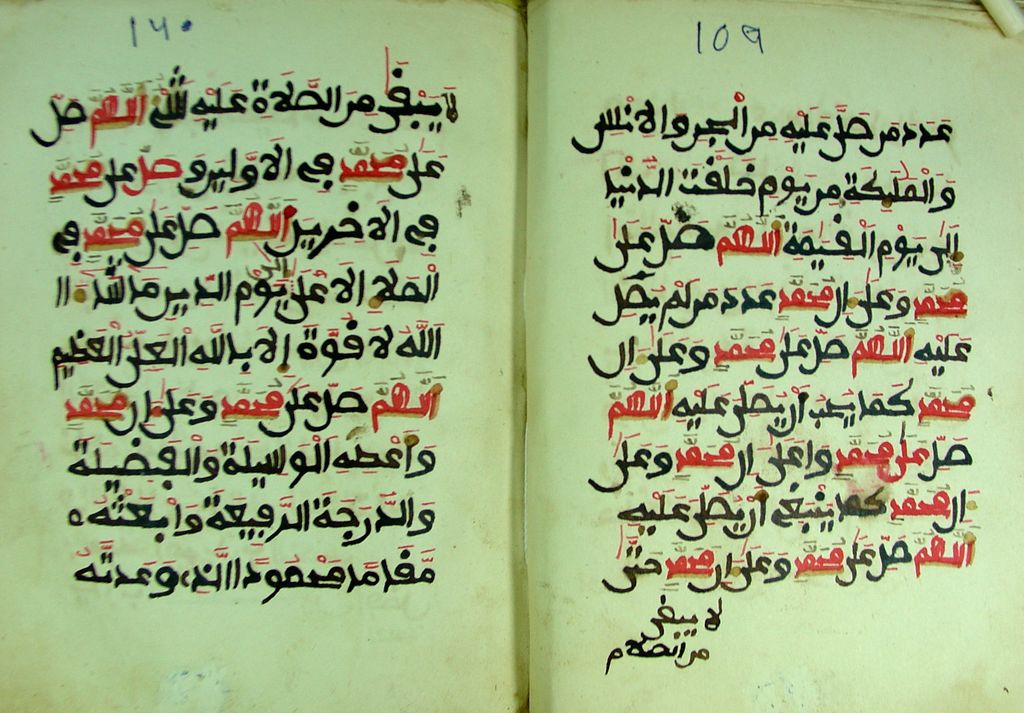 ١٥٩
عدد من صل عليه من الجن والانس
والملىكة من يوم خلقت الدنيا
الى يوم القيمة اللهم صل على
محمد وعلى ال محمد عدد من لم يصل
عليه اللهم صل على محمد وعلى ال
محمد كما يحب ان يصلى عليه اللهم
صل على محمد واعلى ال محمد وعلى
ال محمد كما ينبغي ان يصلى عليه
اللهم صل على محمد وعلى ال محمد حتى
لا يبقى
من الصلام
١٦٠
لا يبقى من الصلاة عليه شئ اللهم صل
على محمد في الاولين وصل على محمد
في الاخرين اللهم صل على محمد في
الملا الاعلى يوم الدين ما شا
الله لا قوة الا بالله العلى العظيم
اللهم صل على محمد وعلى ال محمد
واعطه الوسيلة والفضيلة
والدرجة الرفيعة وابعثه
مقاما محمودا الذي وعدته